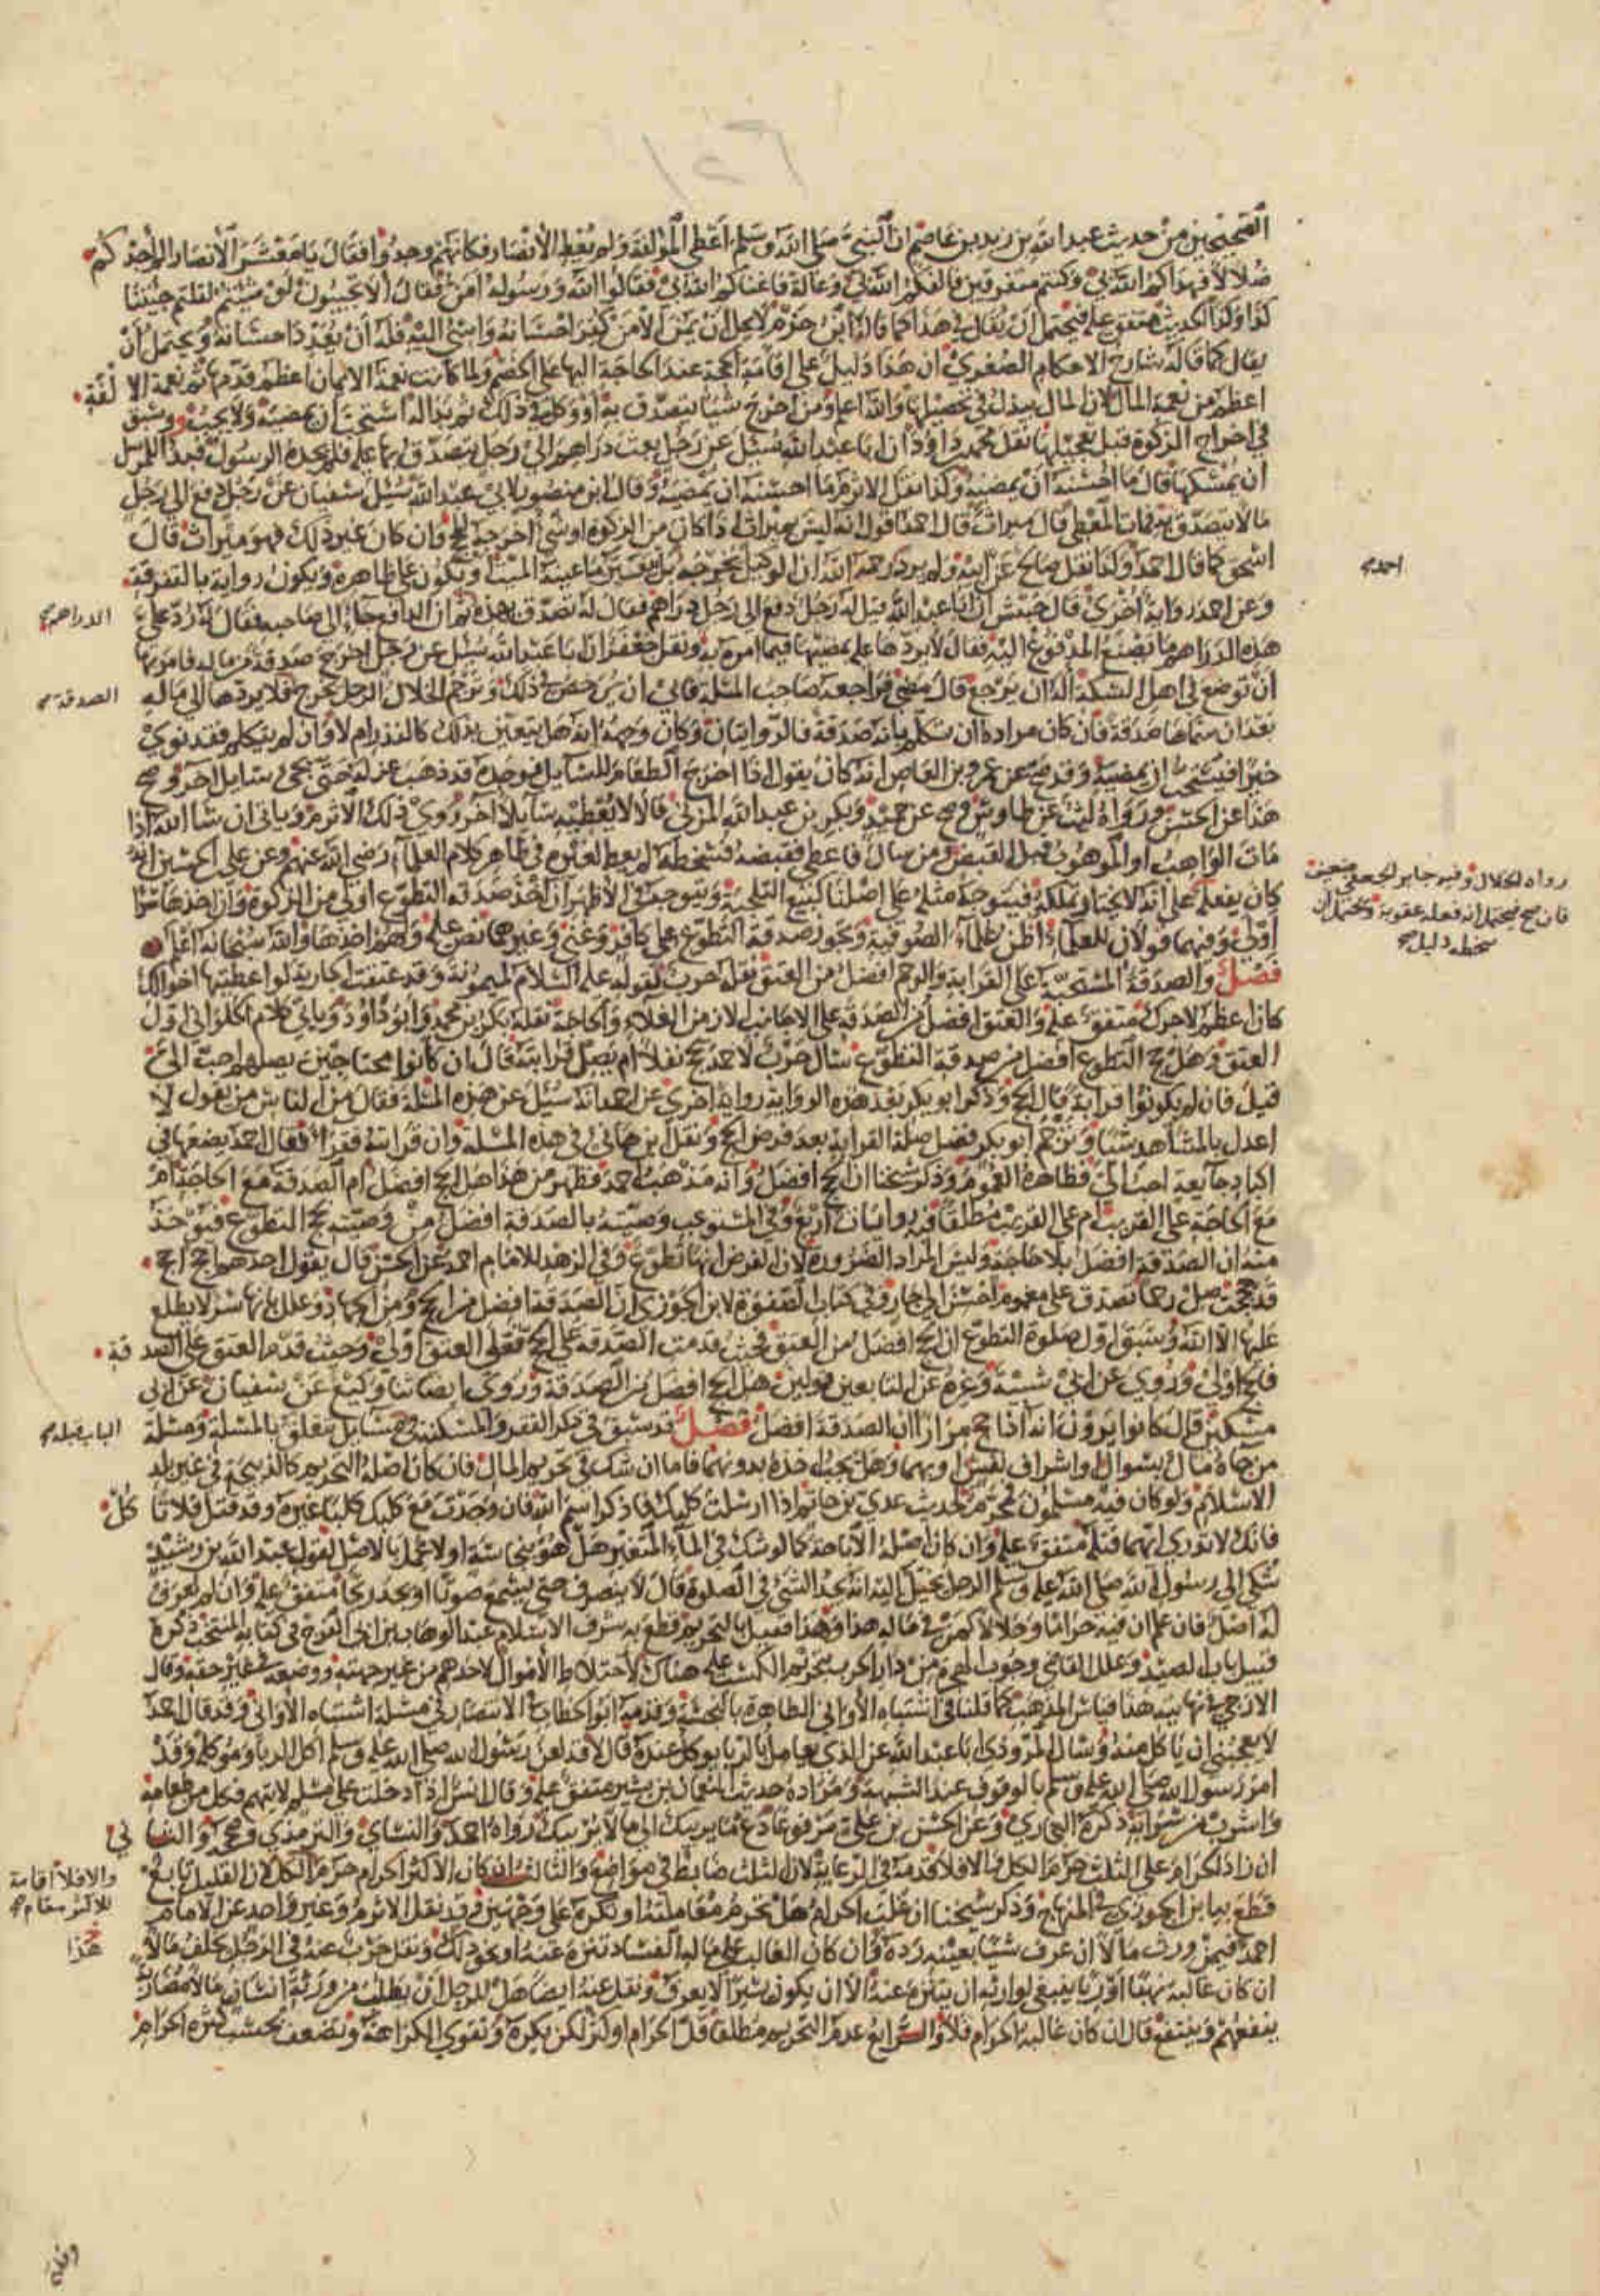 الصحيحين من حديث عبد الله بن زيد بن عاصم ان النبي صلى الله وسلم اعطى المؤلفة ولم يعط الأنصار فكانهم وجدوا فقال يا معشر الأنصار الم أجدكم
ضلالا فهداكم الله بي وكنتم متفرقين فالفكم الله بي وعالة فاغناكم الله بي فقالوا الله ورسوله امن فقال ألا تجيبون لو شيتم لقلتم جيتنا
كذا وكذا الحديث متفق عليه فيحتمل ان يقال في هذا كما قاله ابن حزم لا يحل ان يمن الا من كفر احسانه واسئ اليه فله ان يعدد احسانه ويحتمل أن
يقال كما قاله شارح الاحكام الصغرى ان هذا دليل على إقامة الحجة عند الحاجة اليها على الخصم ولما كانت نعمة الايمان اعظم قدمها ثم نعمة الالفة
اعظم من نعمة المال لان المال يبذل في تحصيلها والله اعلم ومن اخرج شيئا يتصدق به أو وكل في ذلك ثم بدا له استحب أن يمضيه ولا يجب وسبق
في اخراج الزكوة قبل تعجيلها نقل محمد بن داود ان ابا عبد الله سئل عن رجل بعث دراهم الى رجل يتصدق بها عليه فلم يجده الرسول فبدا للمرسل
ان يمسكها قال ما احسنه أن يمضيه وكذا نقل الاثرم ما احسنه ان يمضيه وقال ابن منصور لابي عبد الله سئل سفيان عن رجل دفع الى رجل
مالا يتصدق به فمات المعطي قال ميراث قال احمد اقول انه ليس بميراث اذا كان من الزكوة او شئ اخرجه للحج وان كان غير ذلك فهو ميراث قال
اسحق كما قال احمد وكذا نقل صالح عن ابيه ولم يرد رحمه الله ان الوكيل يخرجه بل يتعين ما عينه الميت ويكون على ظاهره ويكون رواية بالتفرقة
احمد صح
وعن احمد رواية أخرى قال حنبش ان ابا عبد الله قيل له رجل دفع الى رجل دراهم فقال له تصدق بهذه ثم ان الدافع جاء الى صاحبه فقال له رد علي
الدراهم صح
هذه الدراهم ما يصنع المدفوع اليه فقال لا يردها عليه يمضيها فيما امره به ونقل جعفر ان ابا عبد الله سئل عن رجل اخرج صدقة من ماله فامر بها
أن توضع في اهل السكة اله ان يرجع قال يمضي فراجعه صاحب المسئلة فابى ان يرخص في ذلك وترجم الخلال الرجل يخرج فلا يردها الى ماله
الصدقة صح
بعد ان سماها صدقة فان كان مراده ان تكلم بانه صدقة فالروايتان وكان وجهه انه هل يتعين بذلك كالنذر ام لا وان لم يتكلم فقد نوى
خيرا فيستحب ان يمضيه وقد صح عن عمرو بن العاص انه كان يقول اذا اخرج الطعام للسايل فوجده قد ذهب عزله حتى يجئ سايل آخر وصح
هذا عن الحسن ورواه ليث عن طاوس وصح عن حميد وبكر بن عبد الله المزني قالا لا يعطيه سايلا آخر روى ذلك الأثرم ويأتى ان شا الله اذا
مات الواهب او الموهوب قبل القبض ومن سال فاعطي فقبضه فسخطه لم يعط لغيره في ظاهر كلام العلماء رضي الله عنهم وعن علي بن الحسين انه
كان يفعله
رواه الخلال وفيه جابر الجعفي ضعيف
فان صح فيحتمل انه فعله عقوبة ويحتمل ان
سخطه دليل صح
على انه لا يختار تملكه فيتوجه مثله على اصلنا كبيع التلجية ويتوجه في الأظهر أن اخذ صدقة التطوع اولى من الزكوة وأن اخذها سرا
اولى وفيهما قولان للعلماء اظن علماء الصوفية وتجوز صدقة التطوع على كافر وغني وغيرهما نص عليه ولهم اخذها والله سبحانه اعلم
فصل والصدقة المستحبة على القرابة والرحم افضل من العتق نقله حرب لقوله عليه السلام لميمونة وقد عتقت الجارية لو اعطيتها اخوالك
كان اعظم لاجرك متفق عليه والعتق افضل من الصدقة على الاجانب الا زمن الغلاء والحاجة نقله بكر بن محمد وابو داود ويأتي كلام الحلواني اول
العتق وهل حج التطوع افضل من صدقة التطوع سال حرب لاحمد يحج نفلا ام يصل قرابته قال ان كانوا محتاجين يصلهم احب الي
قيل فان لم يكونوا قرابة قال الحج وذكر ابو بكر بعد هذه الرواية رواية أخرى عن احمد انه سئل عن هذه المسئلة فقال من الناس من يقول لا
اعدل بالمشاهد شيئا وترجم أبو بكر فضل صلة القرابة بعد فرض الحج ونقل ابن هاني في هذه المسئلة وان قرابته فقراء فقال احمد يضعها في
اكباد جايعة احب الي فظاهره العموم وذكر شيخنا ان الحج افضل وانه مذهب احمد فظهر من هذا هل الحج افضل ام الصدقة مع الحاجة ام
مع الحاجة على القريب ام على القريب مطلقا فيه روايات اربع وفي المستوعب وصيته بالصدقة افضل من وصيته بحج التطوع فيؤخذ
منه ان الصدقة افضل بلا حاجة وليس المراد الضرورة لان الفرض انها تطوع وفي الزهد للامام احمد عن الحسن قال يقول احدهم احج احج
قد حججت صل رحما تصدق على مغموم احسن الى جار وفي كتاب الصفوة لابن الجوزي ان الصدقة افضل من الحج ومن الجهاد وعلل بانها سر لا يطلع
عليها الا الله وسبق اول صلوة التطوع ان الحج افضل من العتق فحيث قدمت الصدقة على الحج فعلى العتق اولى وحيث قدم العتق على الصدقة
فالحج اولى وروى عن ابن ابي شيبة وغيره عن التابعين قولين هل الحج افضل من الصدقة وروى ايضا ثنا وكيع عن سفيان عن ابى
مسكين قال كانوا يرون انه اذا حج مرارا ان الصدقة افضل فصل قد سبق في ذكر الفقر والمسكنة في مسايل تتعلق بالمسئلة ومسئلة
الباب قبله صح
من جاه مال بسوال او اشراف نفس او بهما وهل يجب اخذه بدونهما فاما ان شك في تحريم المال فان كان اصله التحريم كالذبيحة في غير بلد
الاسلام ولو كان فيه مسلمون فمحرم لحديث عدي بن حاتم اذا ارسلت كلبك فاذكر اسم الله فان وجدت مع كلبك كلبا غيره وقد قتل فلا تاكل
فانك لا تدري ايهما قتله متفق عليه وان كان اصله الاباحة كما لو شك في الماء المتغير هل هو بنجاسة او لا عمل بالاصل لقول عبد الله بن رشيد
شكي الى رسول الله صلى الله عليه وسلم الرجل يخيل اليه انه يجد الشئ في الصلوة قال لا ينصرف حتى يسمع صوتا او يجد ريحا متفق عليه وان لم يعرف
له اصل فان علم ان فيه حراما وحلالا كمن في ماله هذا وهذا فقيل بالتحريم قطع به شرف الاسلام عبد الوهاب بن ابى الفرج في كتابه المنتخب ذكره
قبيل باب الصيد وعلل القاضي وجوب الهجرة من دار الحرب بتحريم الكسب عليه هناك لاختلاط الأموال لاخذهم من غير جهته ووضعه في غير حقه وقال
الازجي في نهايته هذا قياس المذهب كما قلنا في اشتباه الأواني الطاهرة بالنجسة وقدمه ابو الخطاب في الانتصار في مسئلة اشتباه الأواني وقد قال احمد
لا يعجبني ان ياكل منه وسال المروذي ابا عبد الله عن الذي يعامل بالربا يوكل عنده قال لا قد لعن رسول الله صلى الله عليه وسلم آكل الربا وموكله وقد
امر رسول الله صلى الله عليه وسلم بالوقوف عند الشبهة ومراده حديث النعمان بن بشير متفق عليه وقال انس اذا دخلت على مسلم لا يتهم فكل من طعامه
واشرب من شرابه ذكره البخاري وعن الحسن بن علي مرفوعا دع ما يريبك الى ما لا يريبك رواه احمد والنساي والترمذي وصححه والثاني
ان زاد الحرام على الثلث حرم الكل والا فلا قدمه في الرعاية لان الثلث ضابط في مواضع والثالث ان كان الاكثر الحرام حرم الكل لان القليل تابع
والا فلا اقامة
للاكثر مقام صح
قطع به ابن الجوزي في المنهاج وذكر شيخنا ان غلب الحرام هل تحرم معاملته او تكره على وجهين وقد نقل الاثرم وغير واحد عن الامام
هذا
احمد فيمن ورث مالا ان عرف شيئا بعينه رده وان كان الغالب على ماله الفساد تنزه عنه او نحو ذلك ونقل حرب عنه في الرجل يخلف مالا
ان كان غالبه نهبا او ربا ينبغي لوارثه ان يتنزه عنه الا ان يكون يسيرا لا يعرف ونقل عنه ايضا هل للرجل ان يطلب من ورثة انسان مالا مضاربة
ينفعهم وينتفع قال ان كان غالبه الحرام فلا والرابع عدم التحريم مطلقا قل الحرام او كثر لكن يكره وتقوى الكراهة وتضعف بحسب كثرة الحرام
وقلته